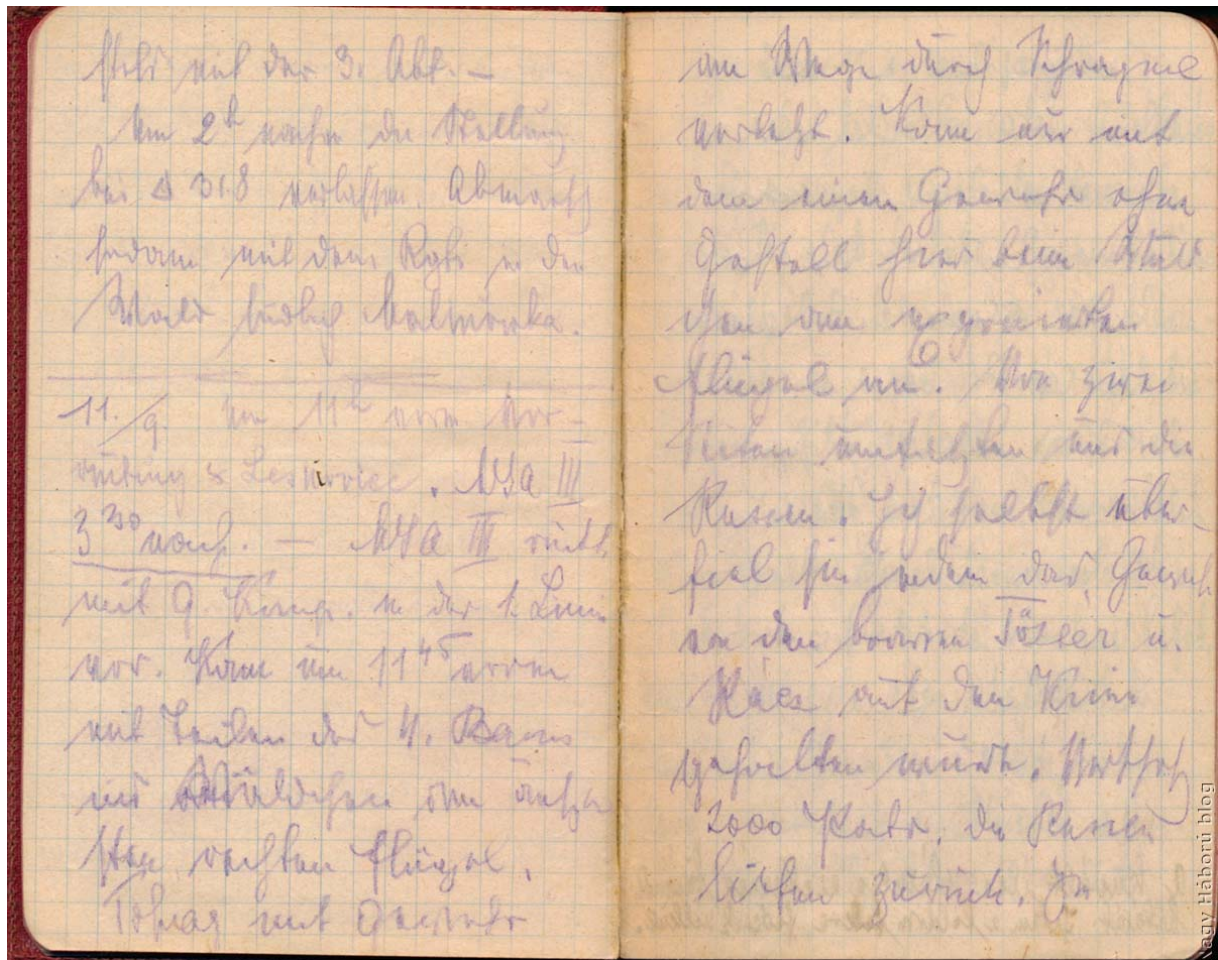 mit der 3. Abt. —
Um 2h die Stellung
bei △ 318 verlassen. Abmarsch
sodann mit dem Rgt. in den
Wald südlich
11./9. Um 11h vorm Vor-
rückung Lesnoviec. MGA III
3 30 nach. — MGA III rückt
mit 9. Komp. in der 1. Linie
vor. Kam um 11 45 vorm
mit Teilen des 4. Baons
ins Wäldchen am äußer
sten rechten Flügel.
mit Gewehr
am Wege durch Schrapnel
verletzt. Kam nur mit
dem einen Gewehr ohne
Gestell hier beim Wäld
chen am
Flügel an. Von zwei
Seiten uns die
Russen. Ich selbst über-
fiel sie indem das Gewehr
von den braven Tőzsér u.
Rácz auf den Knien
gehalten wurde. Verschoß
2000 die Russen
liefen zurück. Zu
Nagy Háború blog